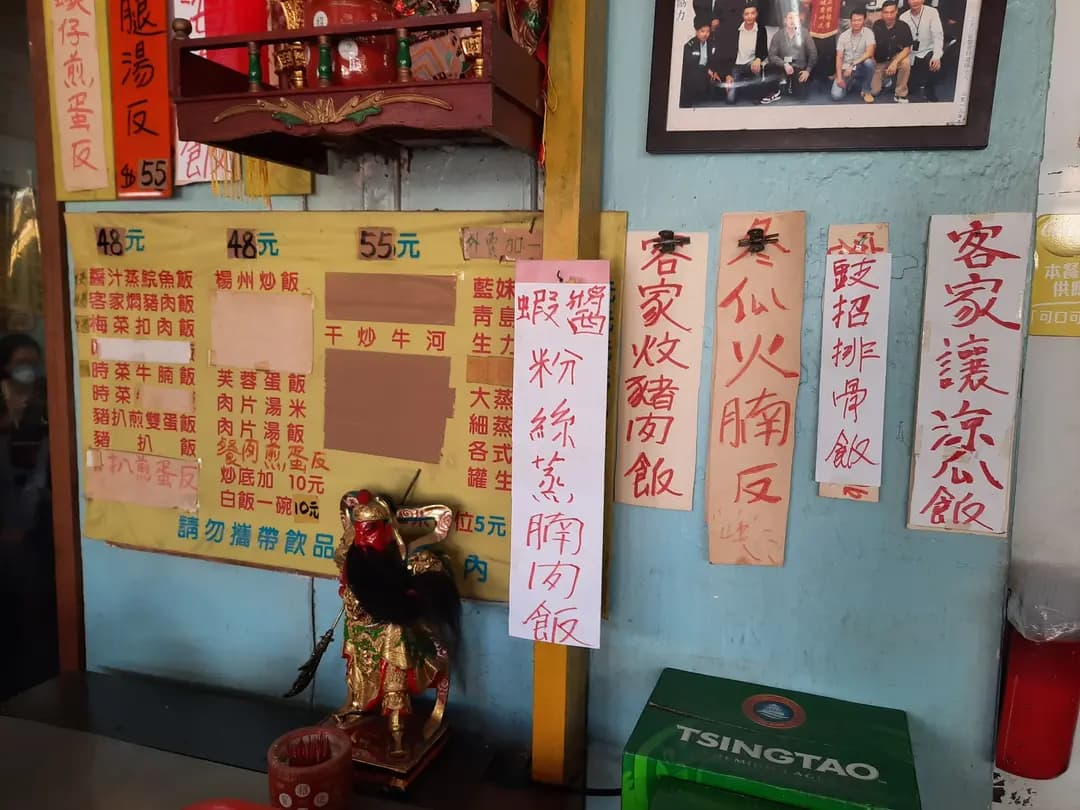 仔煎蛋反
腿湯反
$55
飯
48元
醬汁蒸鯇魚飯
客家燜豬肉飯
梅菜扣肉飯
時菜牛腩飯
時菜
豬扒煎雙蛋飯
豬扒飯
扒煎蛋反
48元
楊州炒飯
芙蓉蛋飯
肉片湯米
肉片湯飯
餐肉煎蛋反
炒底加 10元
白飯一碗10元
55元
干炒牛河
外賣加一
藍妹
青島
生力
大蒸
細蒸
各式
罐生
位5元
請勿攜帶飲品
內
蝦醬
粉絲蒸腩肉飯
客家炆豬肉飯
冬瓜火腩反
豉招排骨飯
客家讓涼瓜飯
本餐
供應
「可口可
TSINGTAO